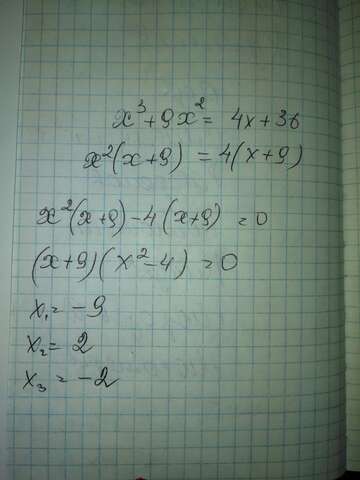 x³+9x²= 4x+36
x²(x+9) = 4(x+9)
x²(x+9)-4(x+9) =0
(x+9)(x²-4) =0
x₁= -9
x₂= 2
x₃ = -2